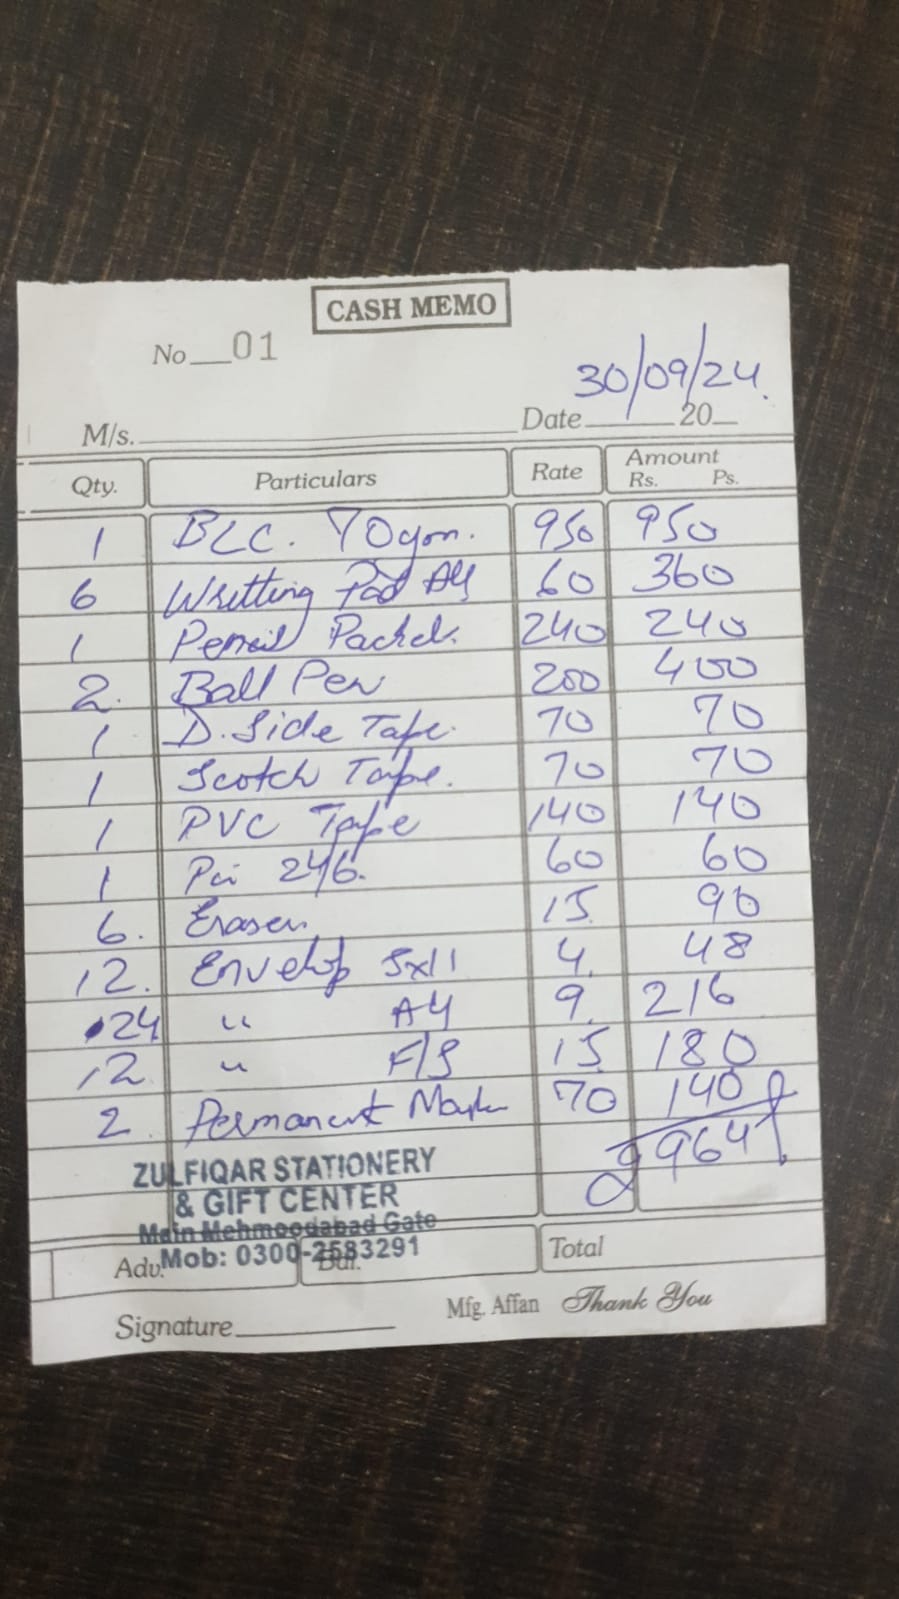 CASH MEMO
No 01
30/09/24.
M/s. Date 20
Qty. Particulars Rate Amount Rs. Ps.
1 BLC. 70gm. 950 950
6 Writting Pad A4 60 360
1 Pencil Packet. 240 240
2. Ball Pen 200 400
1 D. Side Tape. 70 70
1 Scotch Tape. 70 70
1 PVC Tape 140 140
1 Pin 24/6. 60 60
6. Eraser 15. 90
12. Envelop 5x11 4. 48
24 " A4 9. 216
12 " F/S 15 180
2. Permanent Marker 70 140
2964
ZULFIQAR STATIONERY
& GIFT CENTER
Main Mehmoodabad Gate
Mob: 0300-2583291
Adv. Bal. Total
Signature Mfg. Affan Thank You